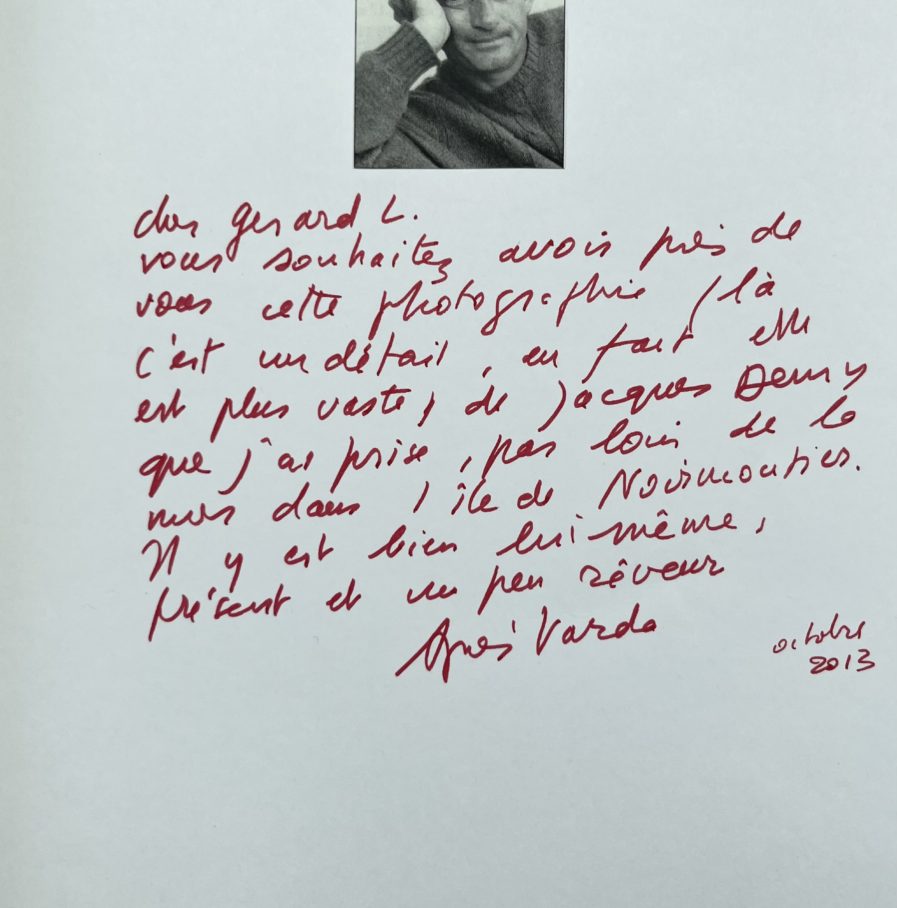 cher Gérard L.
vous souhaitez avoir près de
vous cette photographie (là
c'est un détail, en fait elle
est plus vaste) de Jacques Demy
que j'ai prise, pas loin de la
mer dans l'île de Noirmoutier.
Il y est bien lui même,
présent et un peu rêveur
Agnès Varda
octobre
2013